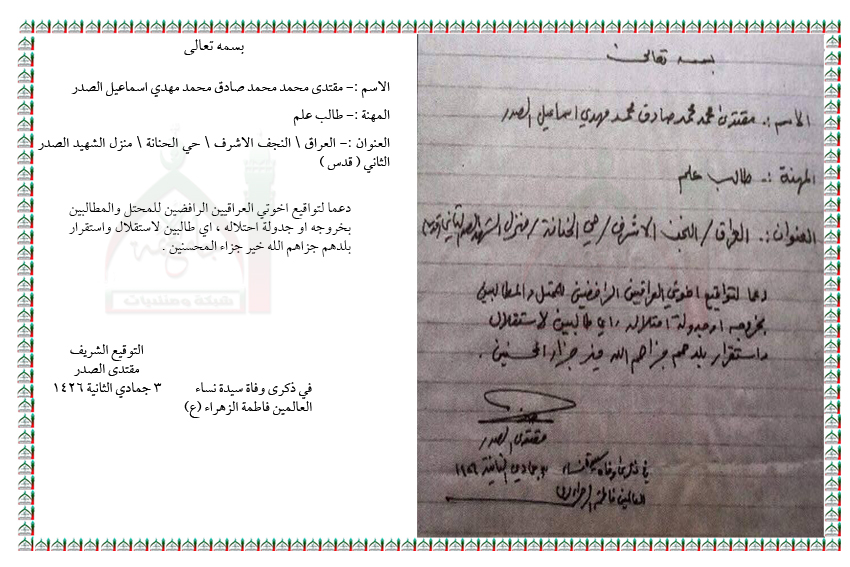 بسمه تعالى
الاسم :- مقتدى محمد محمد صادق محمد مهدي اسماعيل الصدر
المهنة :- طالب علم
العنوان :- العراق \ النجف الاشرف \ حي الحنانة \ منزل الشهيد الصدر
الثاني ( قدس )
دعما لتواقيع اخوتي العراقيين الرافضين للمحتل والمطالبين
بخروجه او جدولة احتلاله ، اي طالبين لاستقلال واستقرار
بلدهم جزاهم الله خير جزاء المحسنين .
التوقيع الشريف
مقتدى الصدر
في ذكرى وفاة سيدة نساء ٣ جمادي الثانية ١٤٢٦
العالمين فاطمة الزهراء (ع)
شبكة ومنتديات
بسمه تعالى
الاسم :. مقتدى محمد محمد صادق محمد مهدي اسماعيل الصدر
المهنة :. طالب علم
العنوان :. العراق / النجف الاشرف / حي الحنانة / منزل الشهيد الصدر الثاني
دعما لتواقيع اخوتي العراقيين الرافضين للمحتل والمطالبين
بخروجه او جدولة احتلاله ، اي طالبين لاستقلال
واستقرار بلدهم جزاهم الله خير جزاء المحسنين .
مقتدى الصدر
في ذكرى وفاة سيدة نساء ٣ جمادي الثانية ١٤٢٦
العالمين فاطمة الزهراء